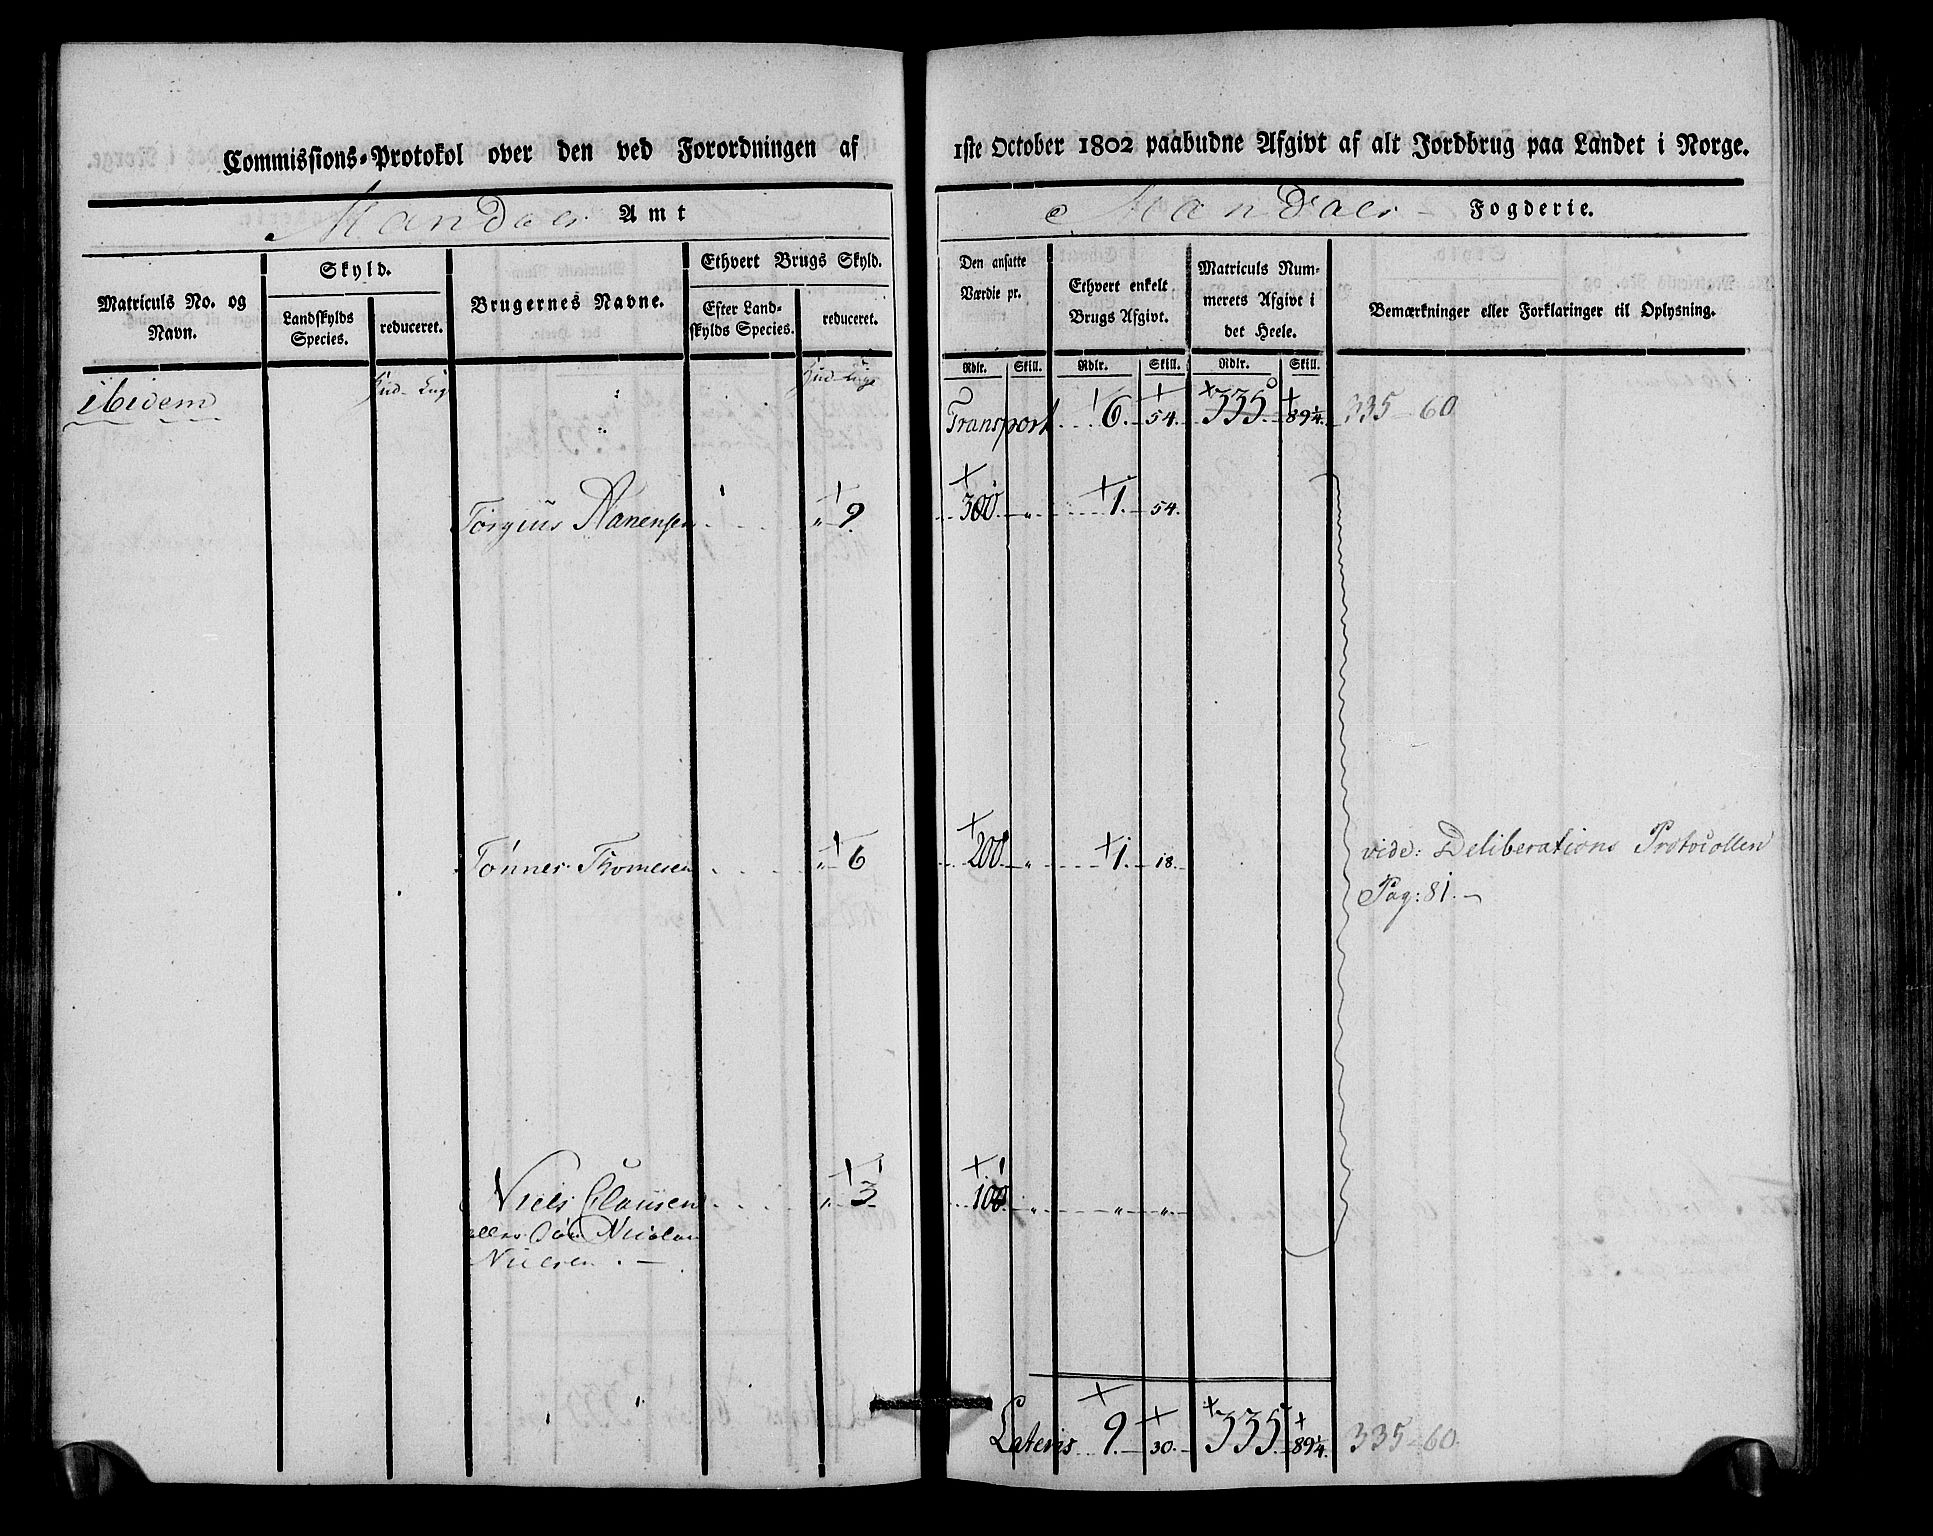 Commissions-Protokol over den ved Forordningen af 1ste October 1802 paabudne Afgivt af alt Jordbrug paa Landet i Norge.
Mandals Amt
Mandals Fogderie.
Matriculs No. og Navn.
Skyld.
Landskylds Species.
reduceret.
Brugernes Navne.
Ethvert Brugs Skyld.
Efter Landskylds Species.
reduceret.
Den ansatte Værdie pr.
Ethvert enkelt Brugs Afgivt.
Matriculs Nummerets Afgivt i det Heele.
Bemærkninger eller Forklaringer til Oplysning.
Rdlr. Skill. Rdlr. Skill. Rdlr. Skill.
ibidem
Transport 6. 54. 335. 89¼. 335-60
Torgius Aanensen " 9. 300. " 1. 54.
Tønnes Thomesen " 6 200 " 1. 18.
vide: Deliberations Protocollen
Pag: 81.
Niels Clausen " 3 100 " " "
Nielsen.
Lateris 9. 30. 335. 89¼. 335-60.